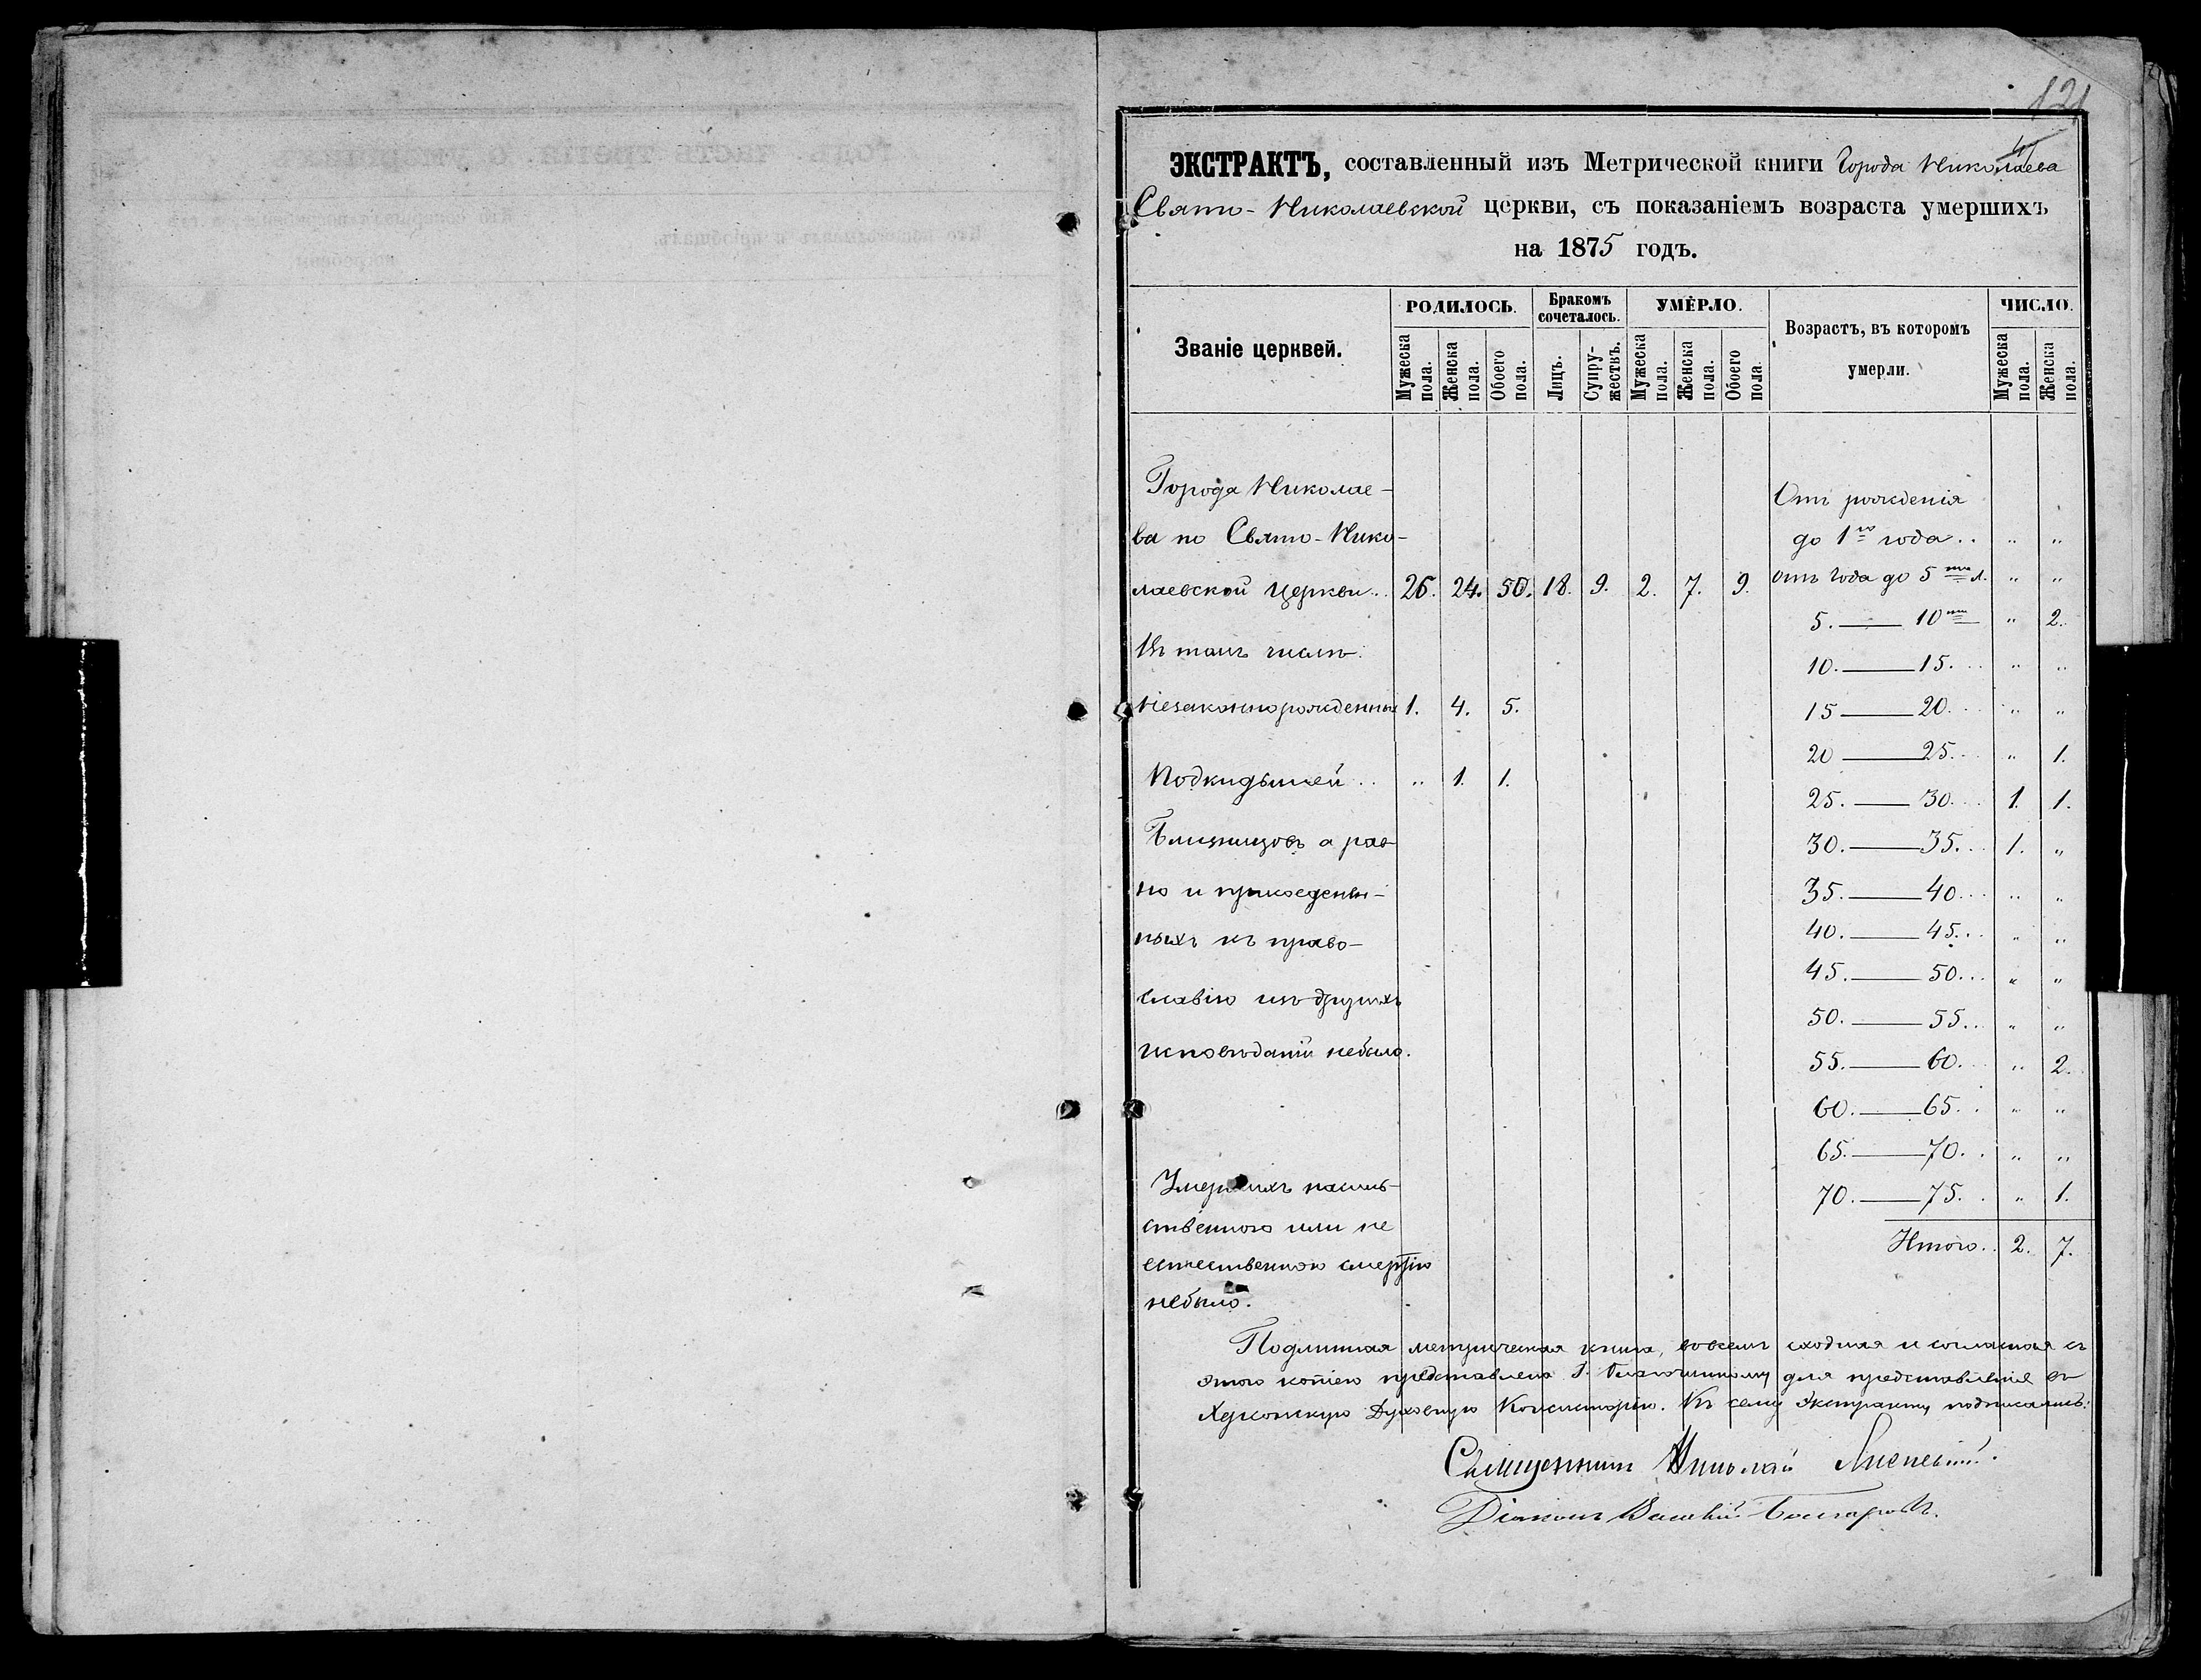 121
ЭКСТРАКТЪ, составленный изъ Метрической книги Города Николаева
Свято-Николаевской церкви, съ показаніемъ возраста умершихъ
на 1875 годъ.
Званіе церквей.
РОДИЛОСЬ.
Мужеска пола.
Женска пола.
Обоего пола.
Бракомъ сочеталось.
Лицъ.
Супружествъ.
УМЕРЛО.
Мужеска пола.
Женска пола.
Обоего пола.
Возрастъ, въ которомъ
умерли.
ЧИСЛО.
Мужеска пола.
Женска пола.
Города Николае-
ва по Свято-Нико-
лаевской Церкви.. 26. 24. 50. 18. 9. 2. 7. 9.
Въ томъ числѣ
Незаконнорожденныхъ 1. 4. 5.
Подкидышей .. „ 1. 1.
Близнецовъ а рав-
но и присоединен-
ныхъ къ право-
славію изъ другихъ
исповѣданій небыло.
Умершихъ насиль-
ственною или не
естественною смертію
небыло.
Отъ рожденія
до 1го года.. „ „
отъ года до 5ти л. „ „
5. — 10ти „ 2.
10. — 15. „ „
15 — 20. „ „
20 — 25. „ 1.
25. — 30. 1. 1.
30. — 35. 1. „
35. — 40. „ „
40. — 45. „ „
45. — 50. „ „
50. — 55. „ „
55. — 60. „ 2.
60. — 65. „ „
65. — 70. „ „
70. — 75. „ 1.
Итого.. 2. 7.
Подлинная метрическая книга, вовсемъ сходная и согласная съ
этою копіею представлена Г. Благочинному для представленія въ
Херсонскую Духовную Консисторію. Къ сему Экстракту подписались:
Священникъ Николай
Діаконъ Василій